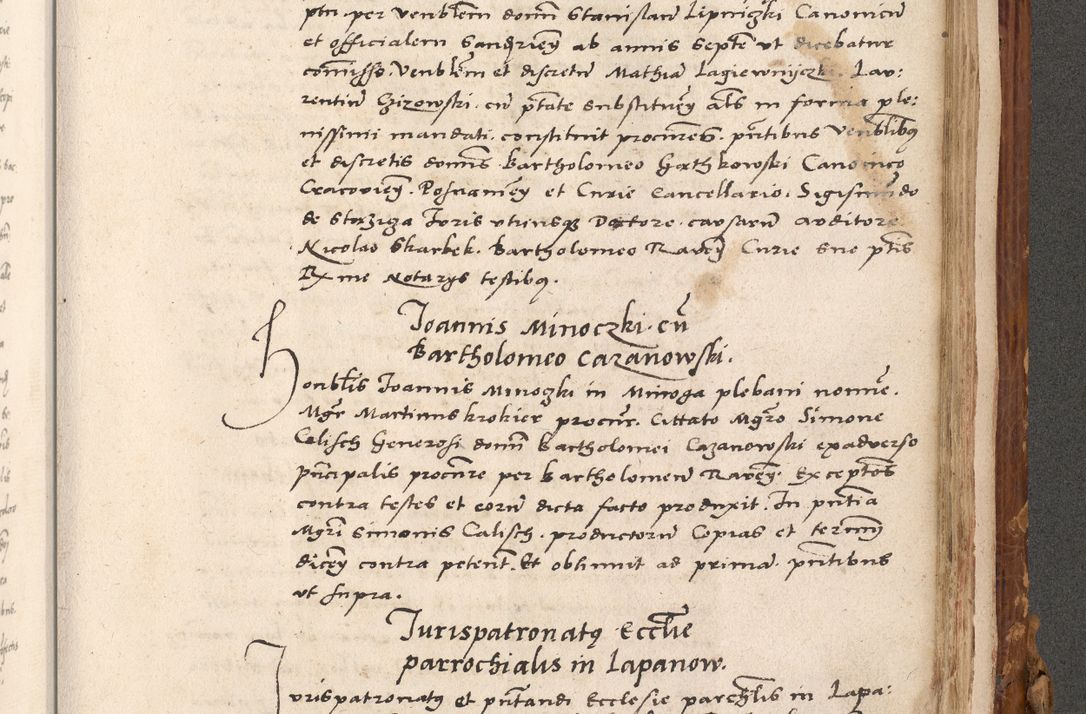 ptn per Venblem domn Stanislaum Lipniczki Canonicum
et officialem Sandriensem ab annis Septem ut dicebatur
commisso. Venblem et discretum Mathiam Lagiewniyczki. Lau:
rentium Czizowski. cum ptate substituendi als in forma ple:
nissimi mandati. constituit procures. pntibus Venblibus
et discretis domnis Bartholomeo Canonico
Cracovien. Posnanien et Curie Cancellario. Sigismundo
de Strziga Juris utriusque Doctore. causarum auditore
Nicolao Skarbek. Bartholomeo Curie Sue ptis
et me Notarys testibus.
Joannis Minoczki. cum
Bartholomeo Cazanowski.
Honblis Joannis Minoczki in Minoga plebani nomine.
Mgr Martinus krokier procur. Cittato Mgro Simone
Calisch Generosi domni Bartholomei Cazanowski exadverso
principalis procure per Bartholomeum Exceptos
contra testes et eorum dicta facto produxit. In pntia
Mgri Simonis Calisch. productorum Copias et terminum
dicendi contra petent. Et obtinuit ad primam. pntibus
ut supra.
Jurispatronatus Ecclie
parrochialis in Lapanow.
Jurispatronatus et pntandi Ecclesie parchlis in Lapa: